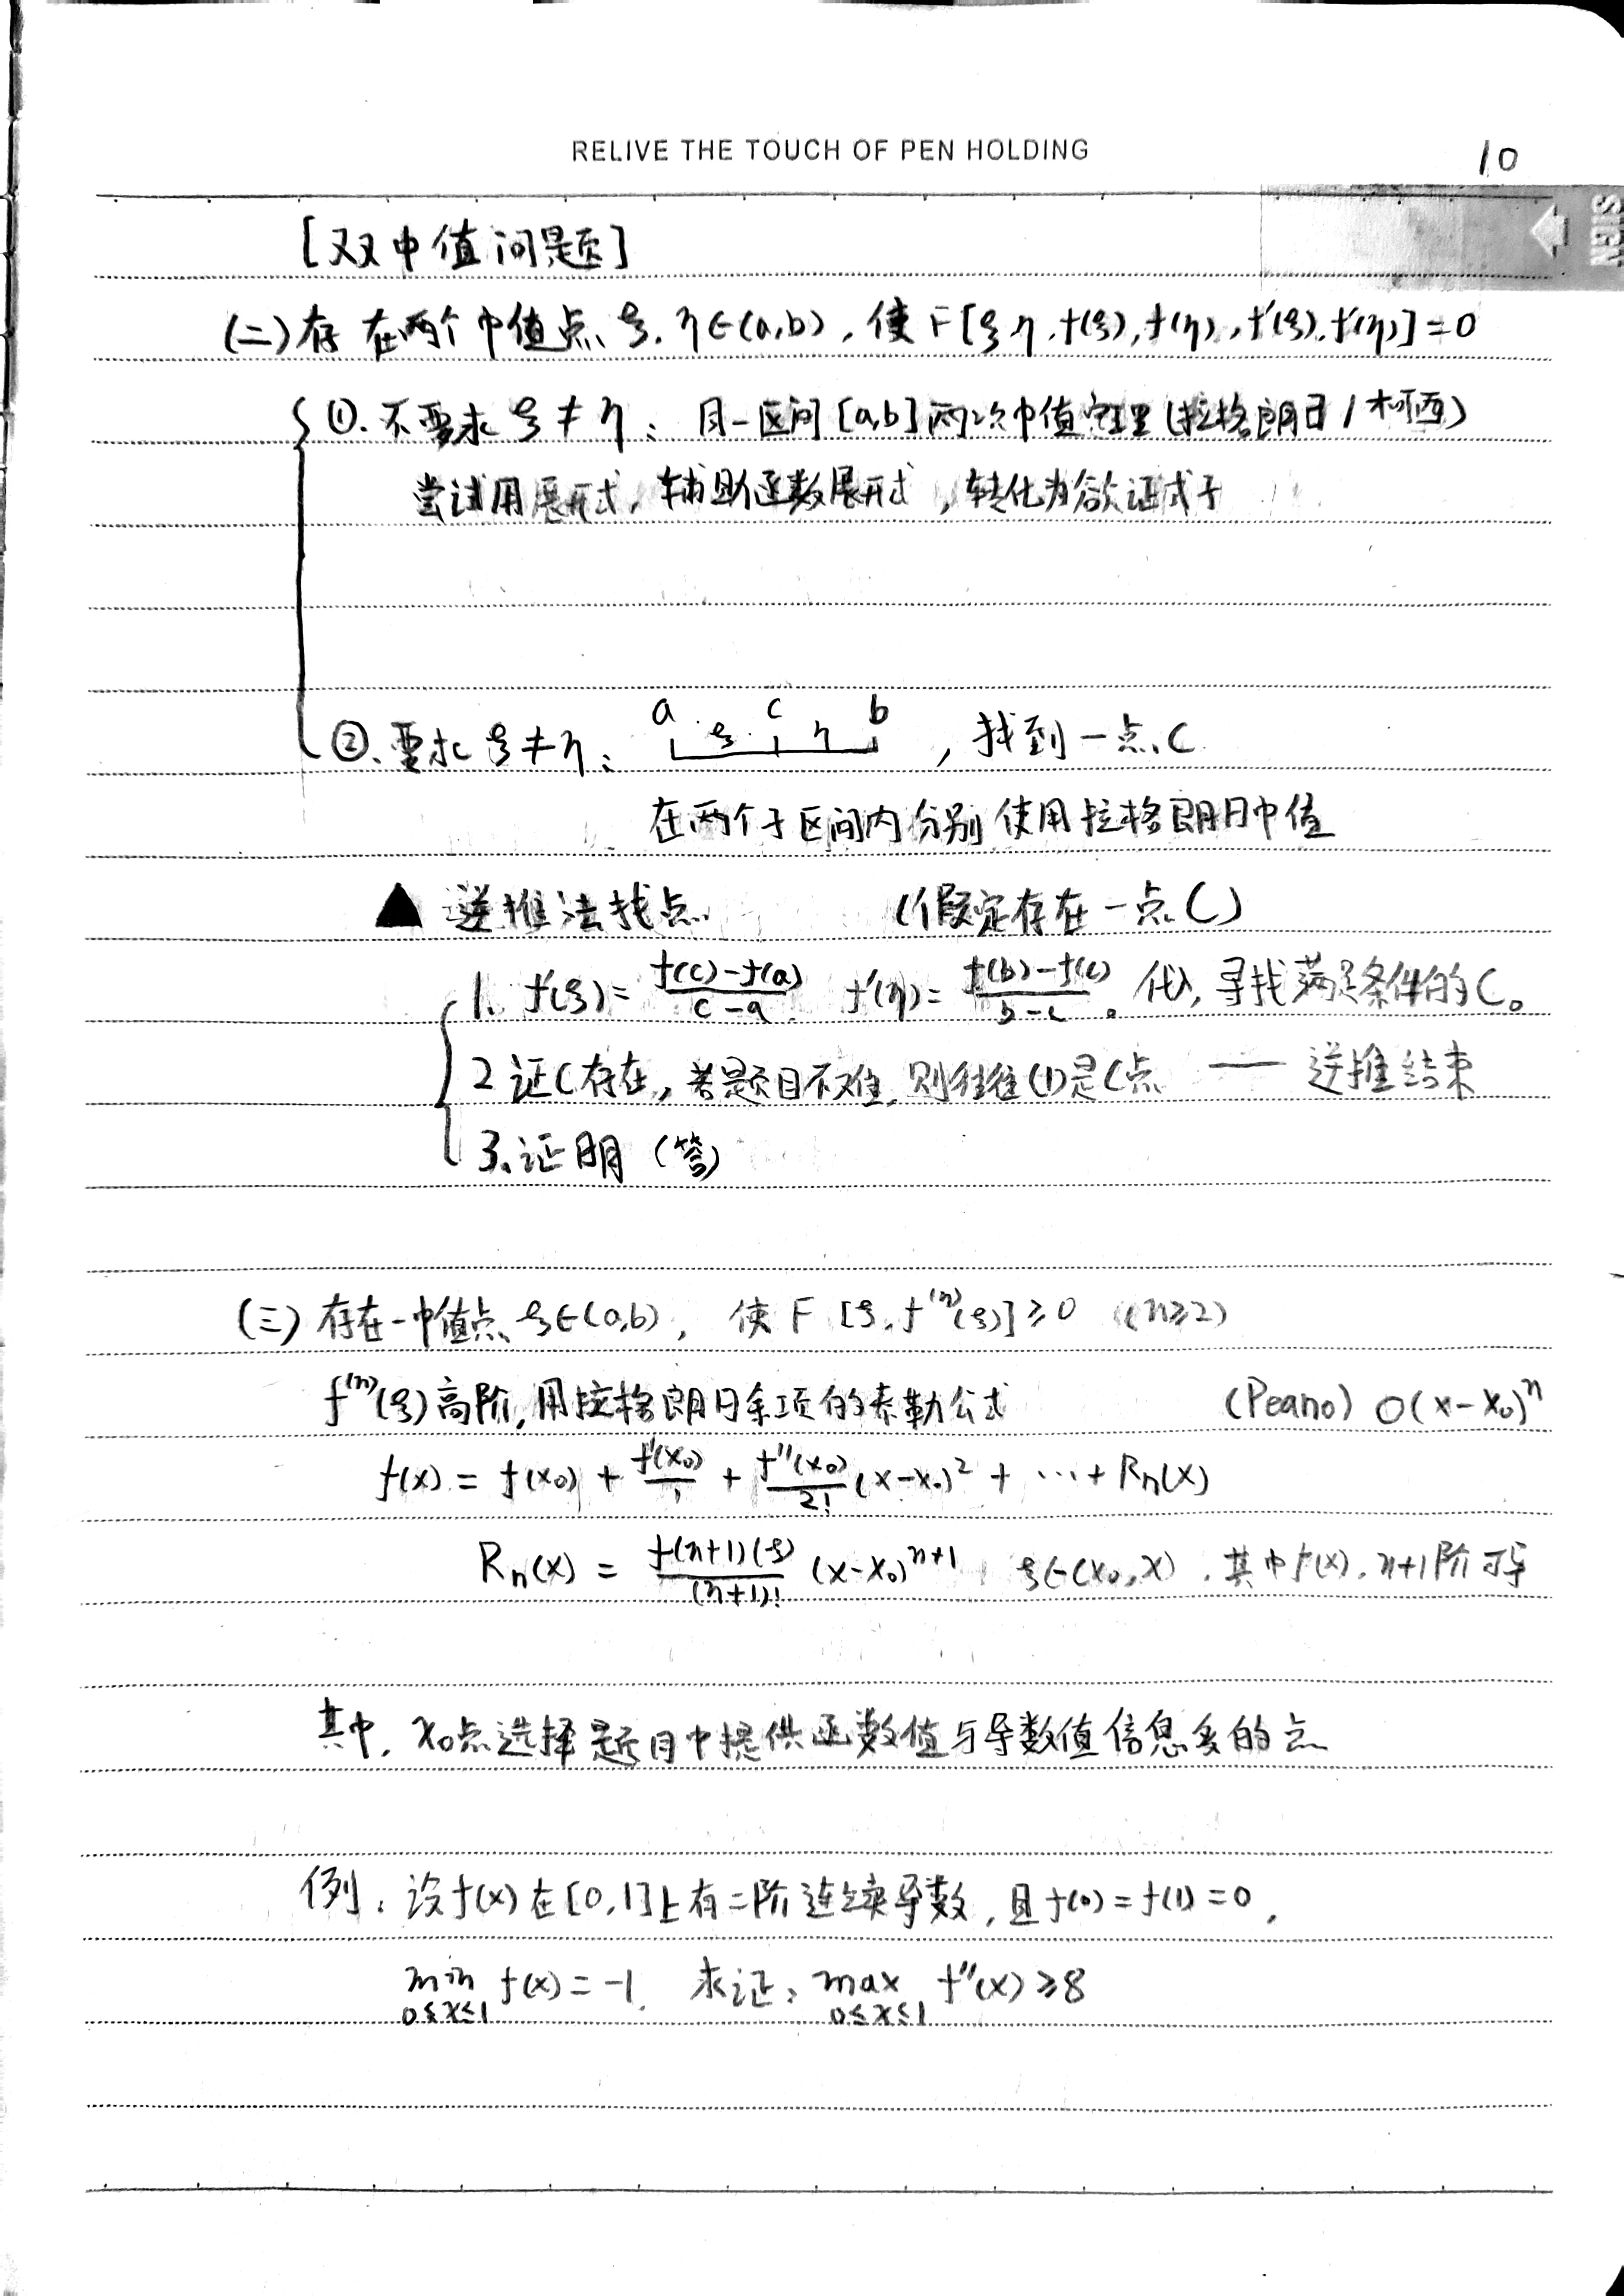 RELIVE THE TOUCH OF PEN HOLDING
10
SIGN
[双中值问题]
(二) 存在两个中值点 ξ, η∈(a,b), 使 F[ξ, η, f(ξ), f(η), f'(ξ), f'(η)] = 0
①. 不要求 ξ ≠ η: 同一区间 [a,b] 两次中值定理 (拉格朗日/柯西)
尝试用展开式, 辅助函数展开式, 转化为欲证式子
a ξ c η b
②. 要求 ξ ≠ η: , 找到一点 C
在两个子区间内分别使用拉格朗日中值
▲ 逆推法找点 (假定存在一点 C)
1. f'(ξ) = \frac{f(c)-f(a)}{c-a} f'(η) = \frac{f(b)-f(c)}{b-c}。代入, 寻找满足条件的 C。
2 证C存在, 若题目不难, 则往往(1)是C点 —— 逆推结束
3. 证明 (答)
(三) 存在一中值点 ξ∈(a,b), 使 F [ξ, f^{(n)}(ξ)] ≥ 0 (n≥2)
f^{(n)}(ξ) 高阶, 用拉格朗日余项的泰勒公式 (Peano) o(x-x₀)^n
f(x) = f(x₀) + \frac{f'(x₀)}{1} + \frac{f''(x₀)}{2!}(x-x₀)² + ⋯ + Rn(x)
Rn(x) = \frac{f(n+1)(ξ)}{(n+1)!} (x-x₀)^{n+1} ξ∈(x₀, x), 其中 f(x), n+1阶可导
其中, x₀点选择题目中提供函数值与导数值信息多的点
例: 设 f(x) 在 [0,1] 上有二阶连续导数, 且 f(0) = f(1) = 0,
min f(x) = -1. 求证: max f''(x) ≥ 8
0≤x≤1 0≤x≤1